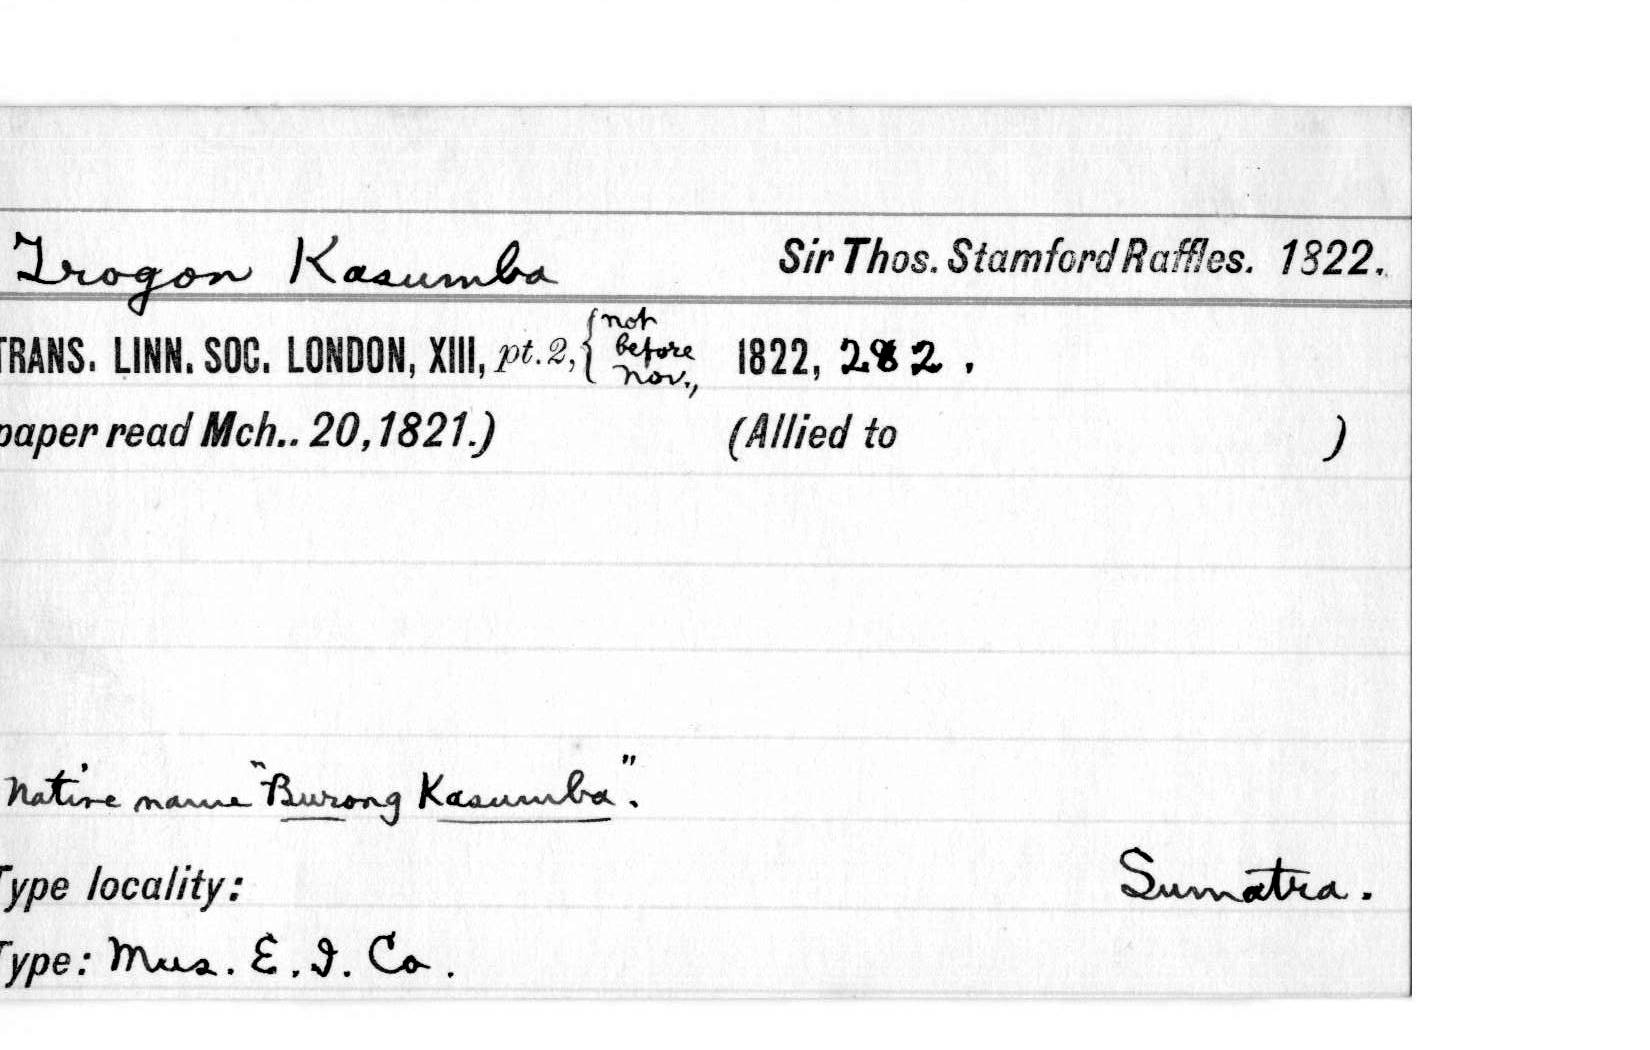 Trogon Kasumba Sir Thos. Stamford Raffles. 1822.
TRANS. LINN. SOC. LONDON, XIII, pt. 2, { not before Nov., 1822, 282.
paper read Mch.. 20, 1821.) (Allied to )
Native name "Burong Kasumba".
Type locality: Sumatra.
Type: Mus. E. I. Co.